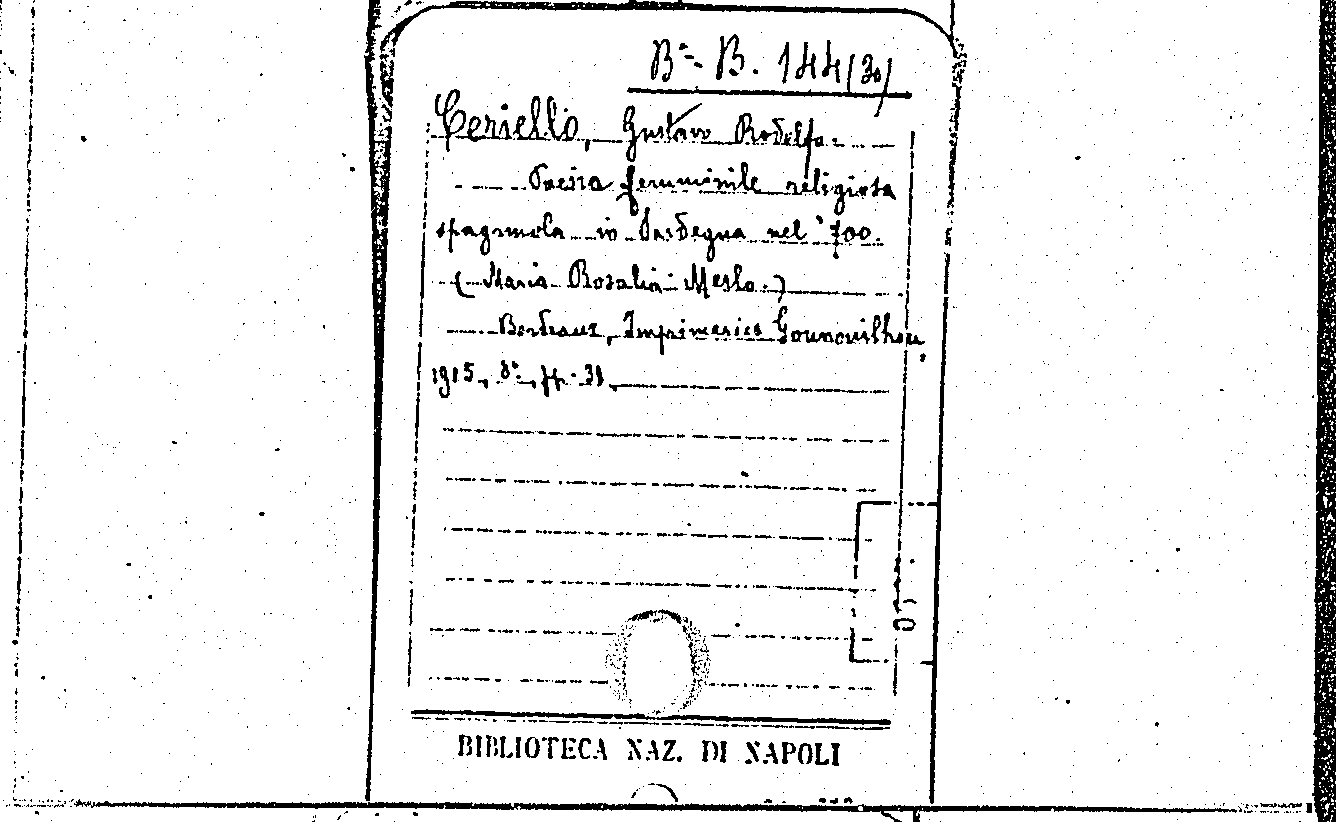 Bª- B. 144(30)
Ceriello, Gustavo Rodolfo.
Poesia femminile religiosa
spagnuola in Sardegna nel '700.
(Maria Rosalia Merlo.)
Bordeaux, Imprimeries Gounouilhou,
1915, 8º, pp. 31.
BIBLIOTECA NAZ. DI NAPOLI